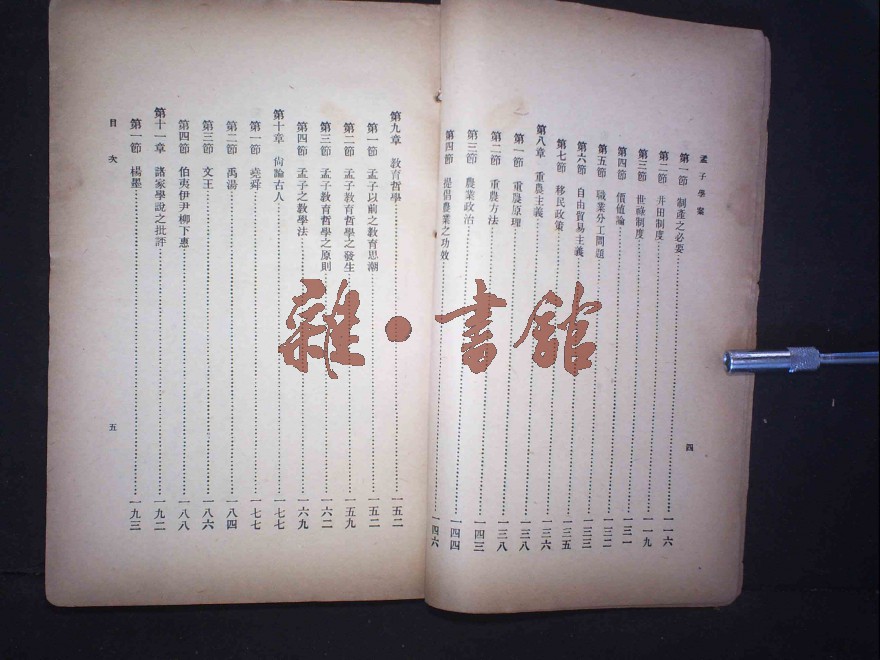 孟子學案 四
第一節 制產之必要……一一六
第二節 井田制度……一一九
第三節 世祿制度……一三一
第四節 價值論……一三二
第五節 職業分工問題……一三三
第六節 自由貿易主義……一三五
第七節 移民政策……一三六
第八章 重農主義……一三八
第一節 重農原理……一三八
第二節 重農方法……一四三
第三節 農業政治……一四四
第四節 提倡農業之功效……一四六
第九章 教育哲學……一五二
第一節 孟子以前之教育思潮……一五二
第二節 孟子教育哲學之發生……一五九
第三節 孟子教育哲學之原則……一六二
第四節 孟子之教學法……一六九
第十章 尙論古人……一七七
第一節 堯舜……一七七
第二節 禹湯……一八四
第三節 文王……一八六
第四節 伯夷伊尹柳下惠……一八八
第十一章 諸家學說之批評……一九二
第一節 楊墨……一九三
目次 五
雜·書館